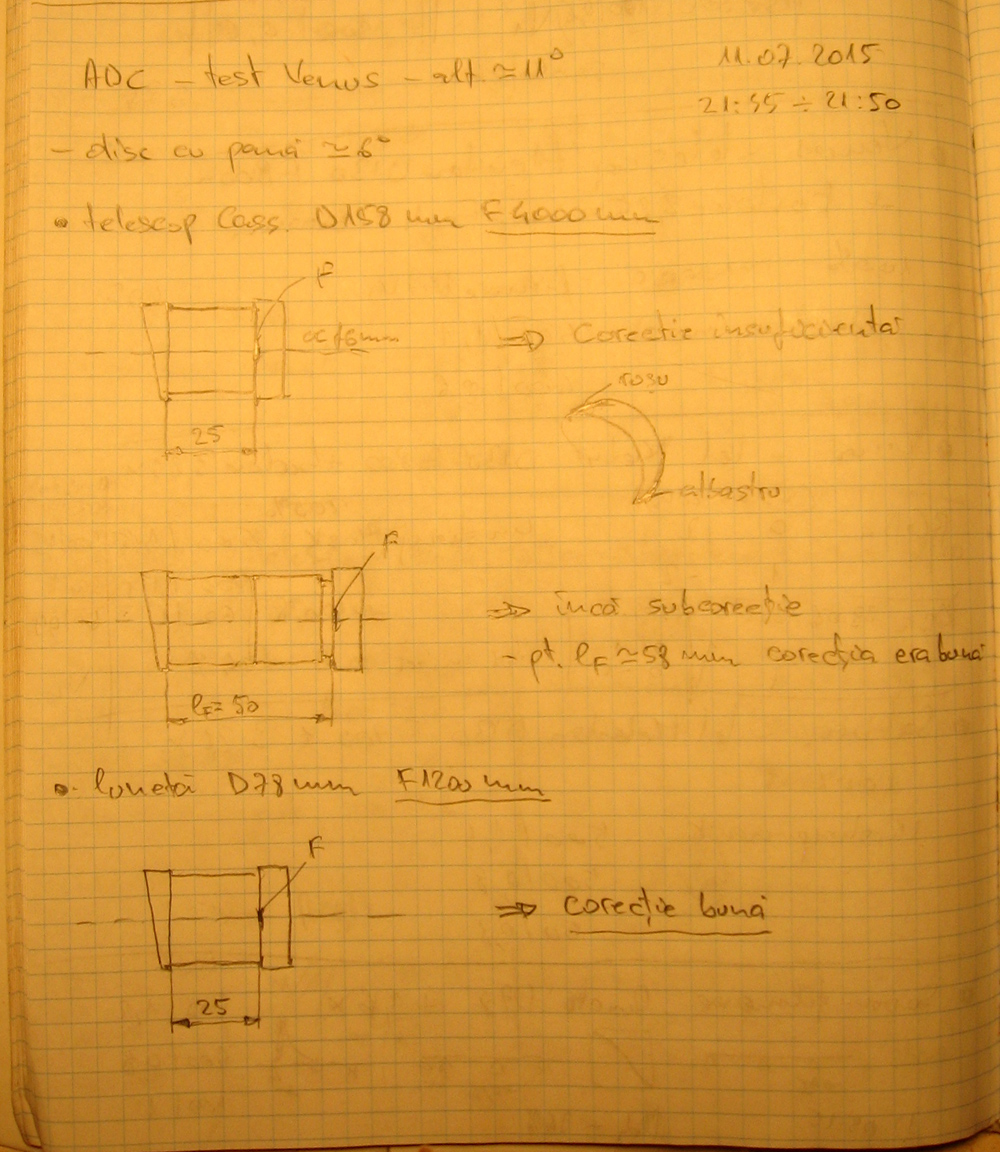 ADC - test Venus - alt. ≃ 11°
11.07.2015
21:35 ÷ 21:50
- disc cu pană ≃ 6°
• telescop Cass. D158 mm F4000mm
F
⇒ Corecție insuficientă
roșu
25
albastru
F
⇒ încă subcorecție
- pt. lF ≃ 58 mm corecția era bună
lF = 50
• lunetă D78 mm F1200 mm
F
⇒ corecție bună
25